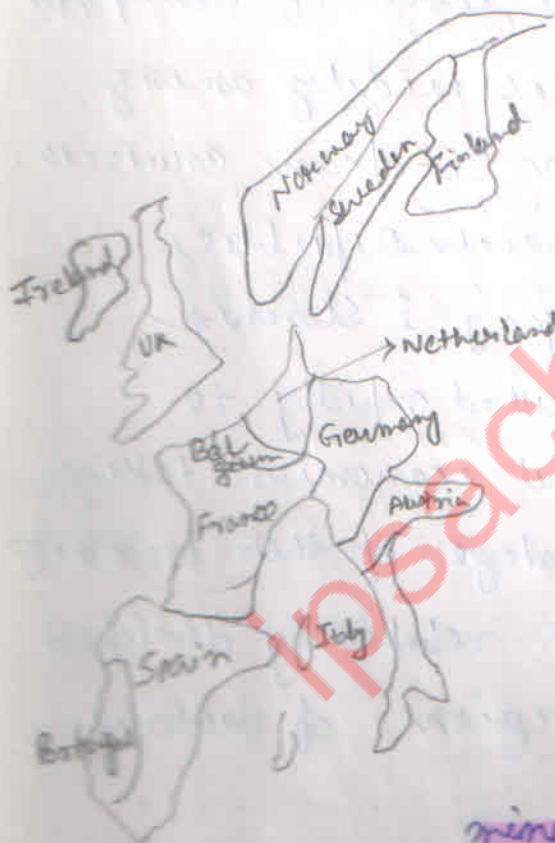 Norway
Sweden
Finland
Ireland
UK
Netherland
Bel
gium
Germany
France
Austria
Italy
Spain
ipsack